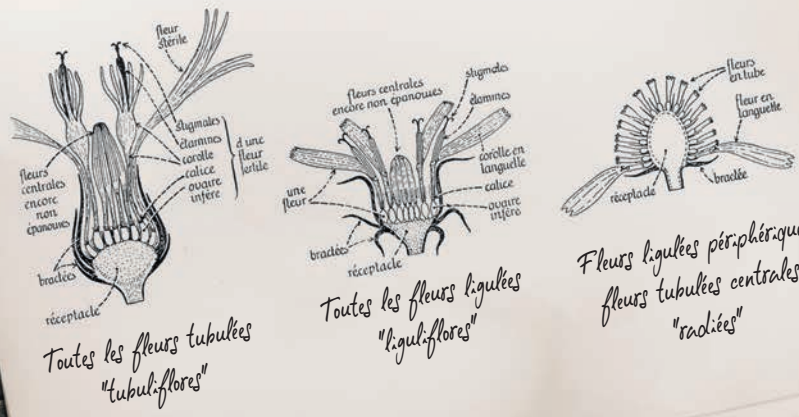 fleur
stérile
stigmates
étamines
corolle
calice
ovaire
infère
d'une
fleur
fertile
fleurs
centrales
encore
non
épanouies
bractées
réceptacle
Toutes les fleurs tubulées
"tubuliflores"
fleurs centrales
encore non épanouies
stigmates
étamines
corolle en
languette
calice
ovaire
infère
une
fleur
bractées
réceptacle
Toutes les fleurs ligulées
"liguliflores"
fleurs
en tube
fleur en
languette
réceptacle
bractée
Fleurs ligulées périphérique
fleurs tubulées centrales
"radiées"